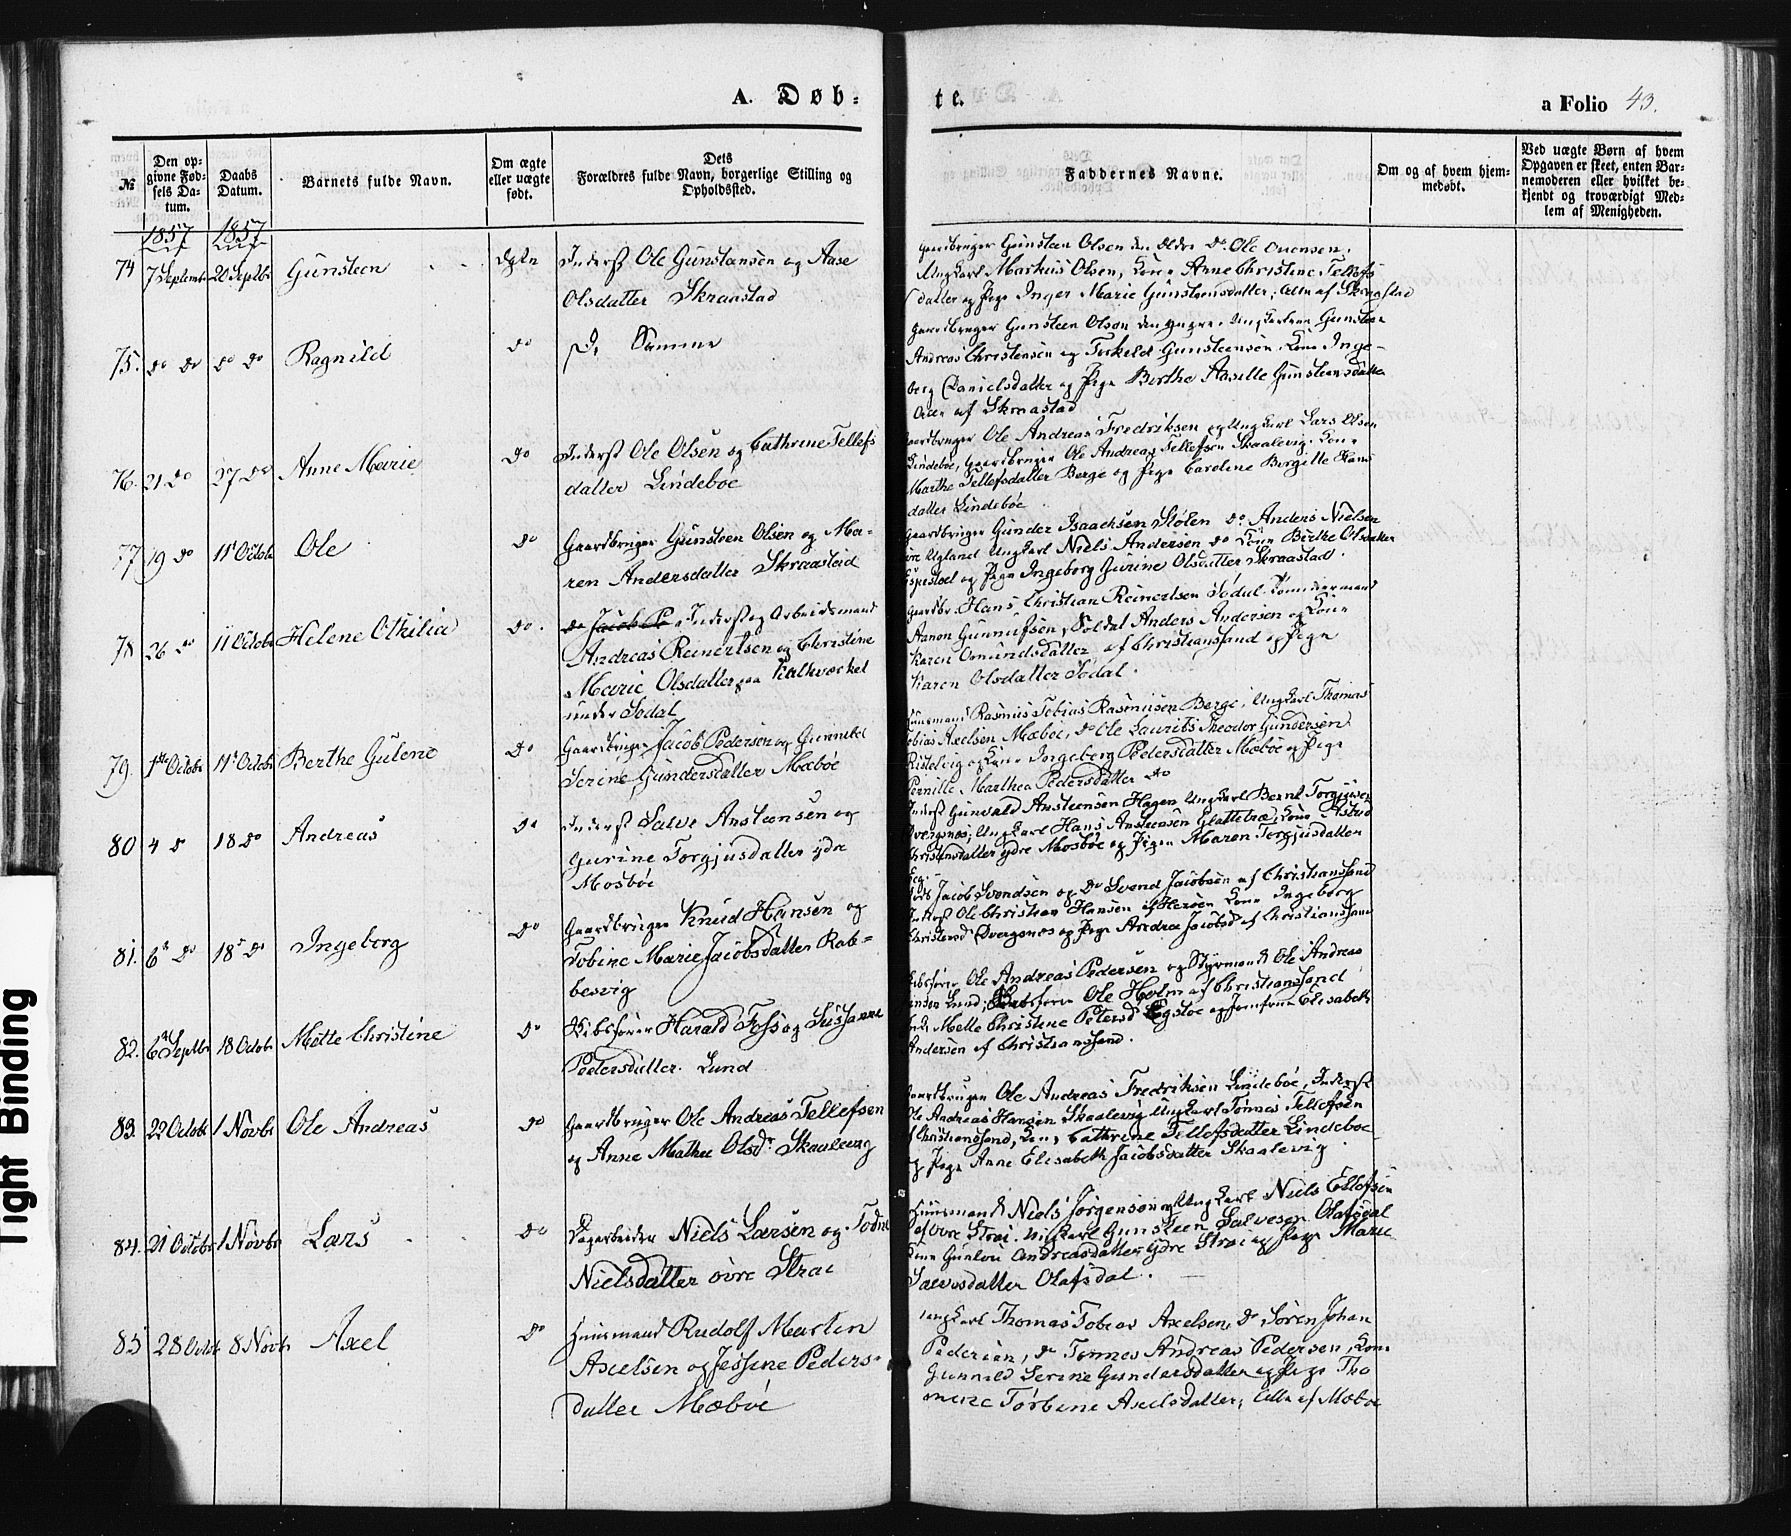 A. Døb=
te.
a Folio 43.
№
Den op-
givne Fød-
sels Da-
tum.
Daabs
Datum.
Barnets fulde Navn.
Om ægte
eller uægte
født.
Dets
Forældres fulde Navn, borgerlige Stilling og
Opholdssted.
Faddernes Navne.
Om og af hvem hjem-
medøbt.
Ved uægte Børn af hvem
Opgaven er skeet, enten Bar-
nemoderen eller hvilket be-
kjendt og troværdigt Med-
lem af Menigheden.
1857 1857
74 7 Septembr 20 Septbr Gunsteen Ægte
Inderst Ole Gunstensen og Aase
Olsdatter Skraastad
Gaardbruger Gunsteen Olsen den Eldre Do Ole
Ungkarl Markus Olsen, Kone Anne Christine Tellefs
datter og Pige Inger Marie Gunsteensdatter, Alle af Skraastad
75. do do do do Ragnild do
Samme
Gaardbruger Gunsteen Olsen den yngre, Ungkarlene Gunsteen
Andreas Christensen og Torkeld Gunsteensen, Kone Inge-
borg Danielsdatter og Pige Berthe Aaselle Gunsteensdatter
Alle af Skraastad
76. 21 do 27 do Anne Marie do
Inderst Ole Olsen og Cathrine Tellefs
datter Lindeboe
Gaardbruger Ole Andreas Fredriksen og Ungkarl Lars Olsen
Lindeboe, Gaardbruger Ole Andreas Tellefsen Skaalevig, Kone
Marthe Tellefsdatter Berge og Pige Caroline Bergitte Hans
datter Lindeboe
77 19 do 11t Octobr Ole do
Gaardbruger Gunsteen Olsen og Ma-
ren Andersdatter Skraastad
Gaardbruger Gunder Isaachsen Stølen Do Anders Nielsen
øvre Ugland Ungkarl Niels Andersen do Kone Birthe Olsdatter
og Pige Ingeborg Gurine Olsdatter Skraastad.
78 26 do 11 Octobr Helene Othilia do.
do Jacob Pe Inderst og Arbeidsmand
Andreas Reinertsen og Christine
Marie Olsdatter paa Kalkværket
under Sødal
Gaardbr. Hans Christian Reinertsen Sødal, Tømmermand
Aanon Gunnufsen, Soldat Anders Andersen og Kone
Karen Omundsdatter af Christianssand og Pige
Karen Olsdatter Sødal.
79. 1ste Octobr 11t Octobr Berthe Guline do
Gaardbruger Jacob Pedersen og Gunnild
Serine Gundersdatter Mæbøe
Huusmand Rasmus Tobias Rasmusen Berge, Ungkarl Thomas
Tobias Axelsen Mæboe, do Ole Laurits Theodor Gundersen
og Kone Ingeborg Pedersdatter Mæboe og Pige
Pernille Marthea Pedersdatter do
80 4 do 18 do Andreas do
Inderst Salve Anstensen og
Gurine Torgjusdatter ydre
Mosbøe
Inderst Gunvald Anstensen Hagen Ungkarl Bernt Torgjusen
Dvergsnes, Ungkarl Hans Anstensen Slettebræ, Kone Astrid
Christensdatter ydre Mosbøe og Pigen Maren Torgjusdatter
81. 6t do 18t do Ingeborg do
Gaardbruger Knud Hansen og
Tobine Marie Jacobsdatter Rab-
besvig
Jacob Svendsen og Do Svend Jacobsen af Christianssand
Inderst Ole Christian Hansen af Herøen Kone Ingeborg
Christensd Dvergsnes og Pige Andrea Jacobsd af Christianssand
82. 6te Septbr 18 Octobr Mette Christine do
Skibsfører Harald Foss og Susanne
Pedersdatter. Lund
Skibsfører Ole Andreas Pedersen og Styrmand Ole Andreas
Lund, Skibsfører Ole Holm af Christianssand
Mette Christine Petersd Egstøe og Jomfrue Elisabeth
Andersen af Christianssand.
83. 22 Octobr 1 Novbr Ole Andreas do
Gaardbruger Ole Andreas Tellefsen
og Anne Mathea Olsdr Skaalevig
Gaardbruger Ole Andreas Fredriksen Lindeboe, Inderst
Ole Andreas Hansen Skaalevig Ungkarl Tønnes Tellefsen
af Christianssand, Kone Cathrine Tellefsdatter Lindeboe
og Pige Anne Elisabeth Jacobsdatter Skaalevig
84. 21 Octobr 1 Novbr Lars do
Dagarbeider Niels Larsen og Todne
Nielsdatter øvre Strai
Huusmand Niels Jørgensen og Ungkarl Niels Ellefsen
af øvre Strai. Ungkarl Gunsteen Salvesen Olafsdal
Kone Gunlou Andreasdatter ydre Strai og Pige Marie
Salvesdatter Olafsdal.
85 28 Octobr 8 Novbr Axel do
Huusmand Rudolf Martin
Axelsen og Jessine Peders-
datter Mæboe
Ungkarl Thomas Tobias Axelsen, do Søren Johan
Pedersen, do Tønnes Andreas Pedersen, Kone
Gunnild Serine Gundersdatter og Pige Tho
mine Torbine Axelsdatter, Alle af Mæboe
Tight Binding